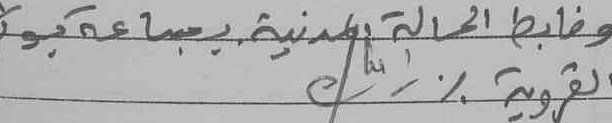 وضابط الحالة المدنية بجماعة
القروية ./.